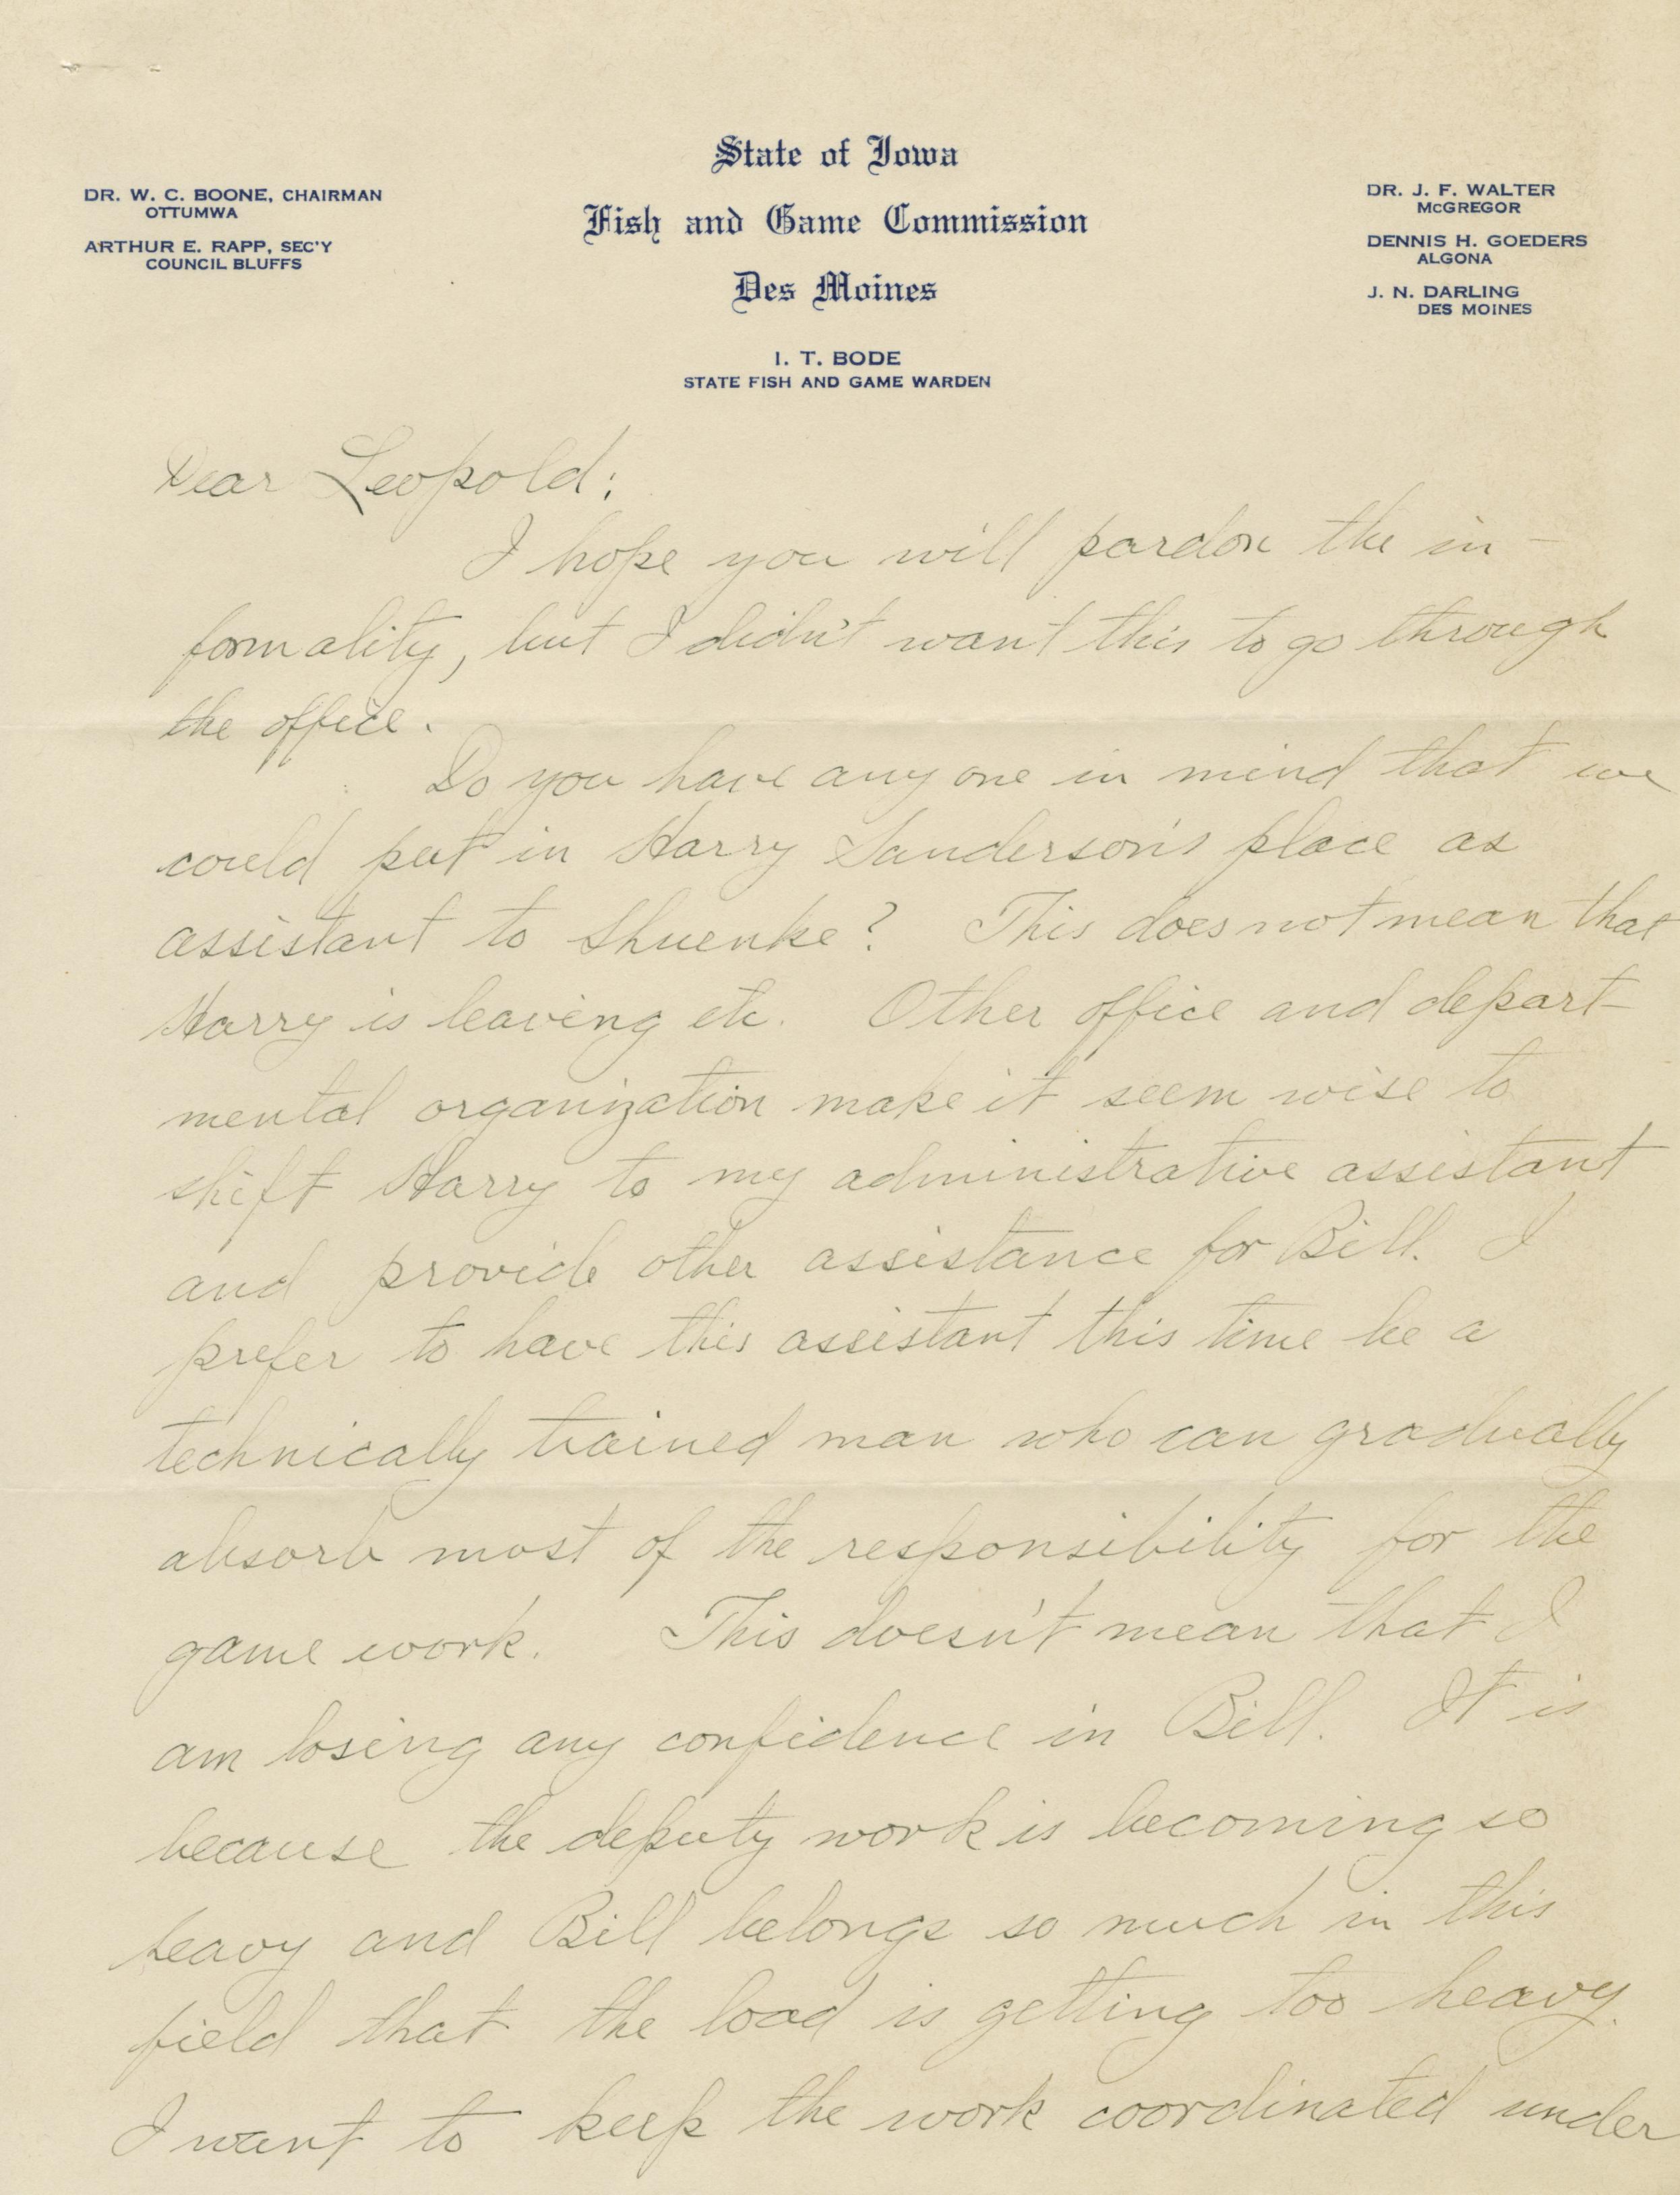 State of Iowa
Fish and Game Commission
Des Moines
DR. W. C. BOONE, CHAIRMAN
OTTUMWA
ARTHUR E. RAPP, SEC'Y
COUNCIL BLUFFS
DR. J. F. WALTER
McGREGOR
DENNIS H. GOEDERS
ALGONA
J. N. DARLING
DES MOINES
I. T. BODE
STATE FISH AND GAME WARDEN
Dear Leopold:
I hope you will pardon the in-
formality, but I didn't want this to go through
the office.
Do you have any one in mind that we
could put in Harry Sanderson's place as
assistant to Shuenke? This does not mean that
Harry is leaving etc. Other office and depart-
mental organization make it seem wise to
shift Harry to my administrative assistant
and provide other assistance for Bill. I
prefer to have this assistant this time be a
technically trained man who can gradually
absorb most of the responsibility for the
game work. This doesn't mean that I
am losing any confidence in Bill. It is
because the deputy work is becoming so
heavy and Bill belongs so much in this
field that the load is getting too heavy.
I want to keep the work coordinated under